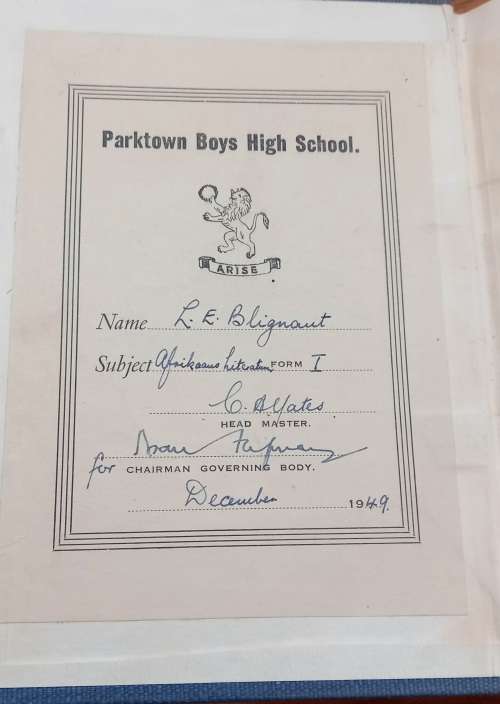 Parktown Boys High School.
ARISE
Name L. E. Blignaut
Subject Afrikaans Literature FORM I
C. A Yates
HEAD MASTER.
for CHAIRMAN GOVERNING BODY.
December 1949.